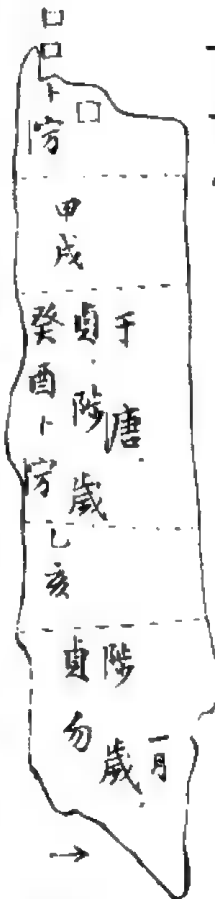 □□卜
□
甲戌
癸酉卜
貞陟歲
于唐
乙亥
貞勿
陟歲
一月